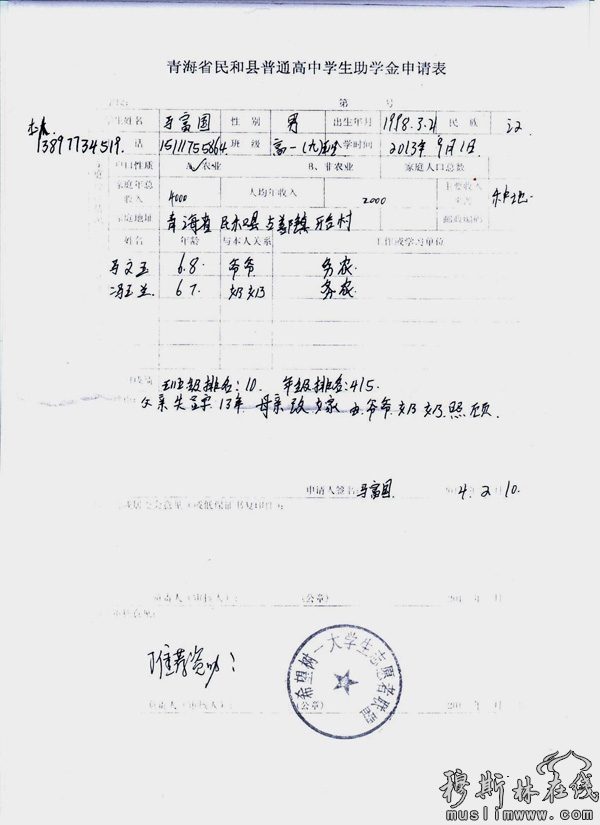 青海省民和县普通高中学生助学金申请表
第 号
生姓名 马富国 性别 男 出生年月 1998.3.21 民族 汉
13897734519. 话 15111755864 班级 高一(九)班 入学时间 2013年9月1日
户口性质 A、农业 B、非农业 家庭人口总数
家庭年总收入 4000 人均年收入 2000 主要收入 种地
家庭地址 青海省民和县 镇 村 邮政编码
姓名 年龄 与本人关系 工作或学习单位
马文玉 68 爷爷 务农
冯玉兰 67 奶奶 务农
班级排名:10. 年级排名:415
父亲失踪13年 母亲改嫁 由爷爷奶奶照顾
申请人签名 马富国 4. 2 10
或居 会意见(或低保证书复印件):
负责人(审核人): (公章) 201 年 月
审核意见:
推荐资助:
希望树一大学生志愿者联盟
负责人(审核人): (公章) 201 年 月
穆斯林在线
muslimwww.com